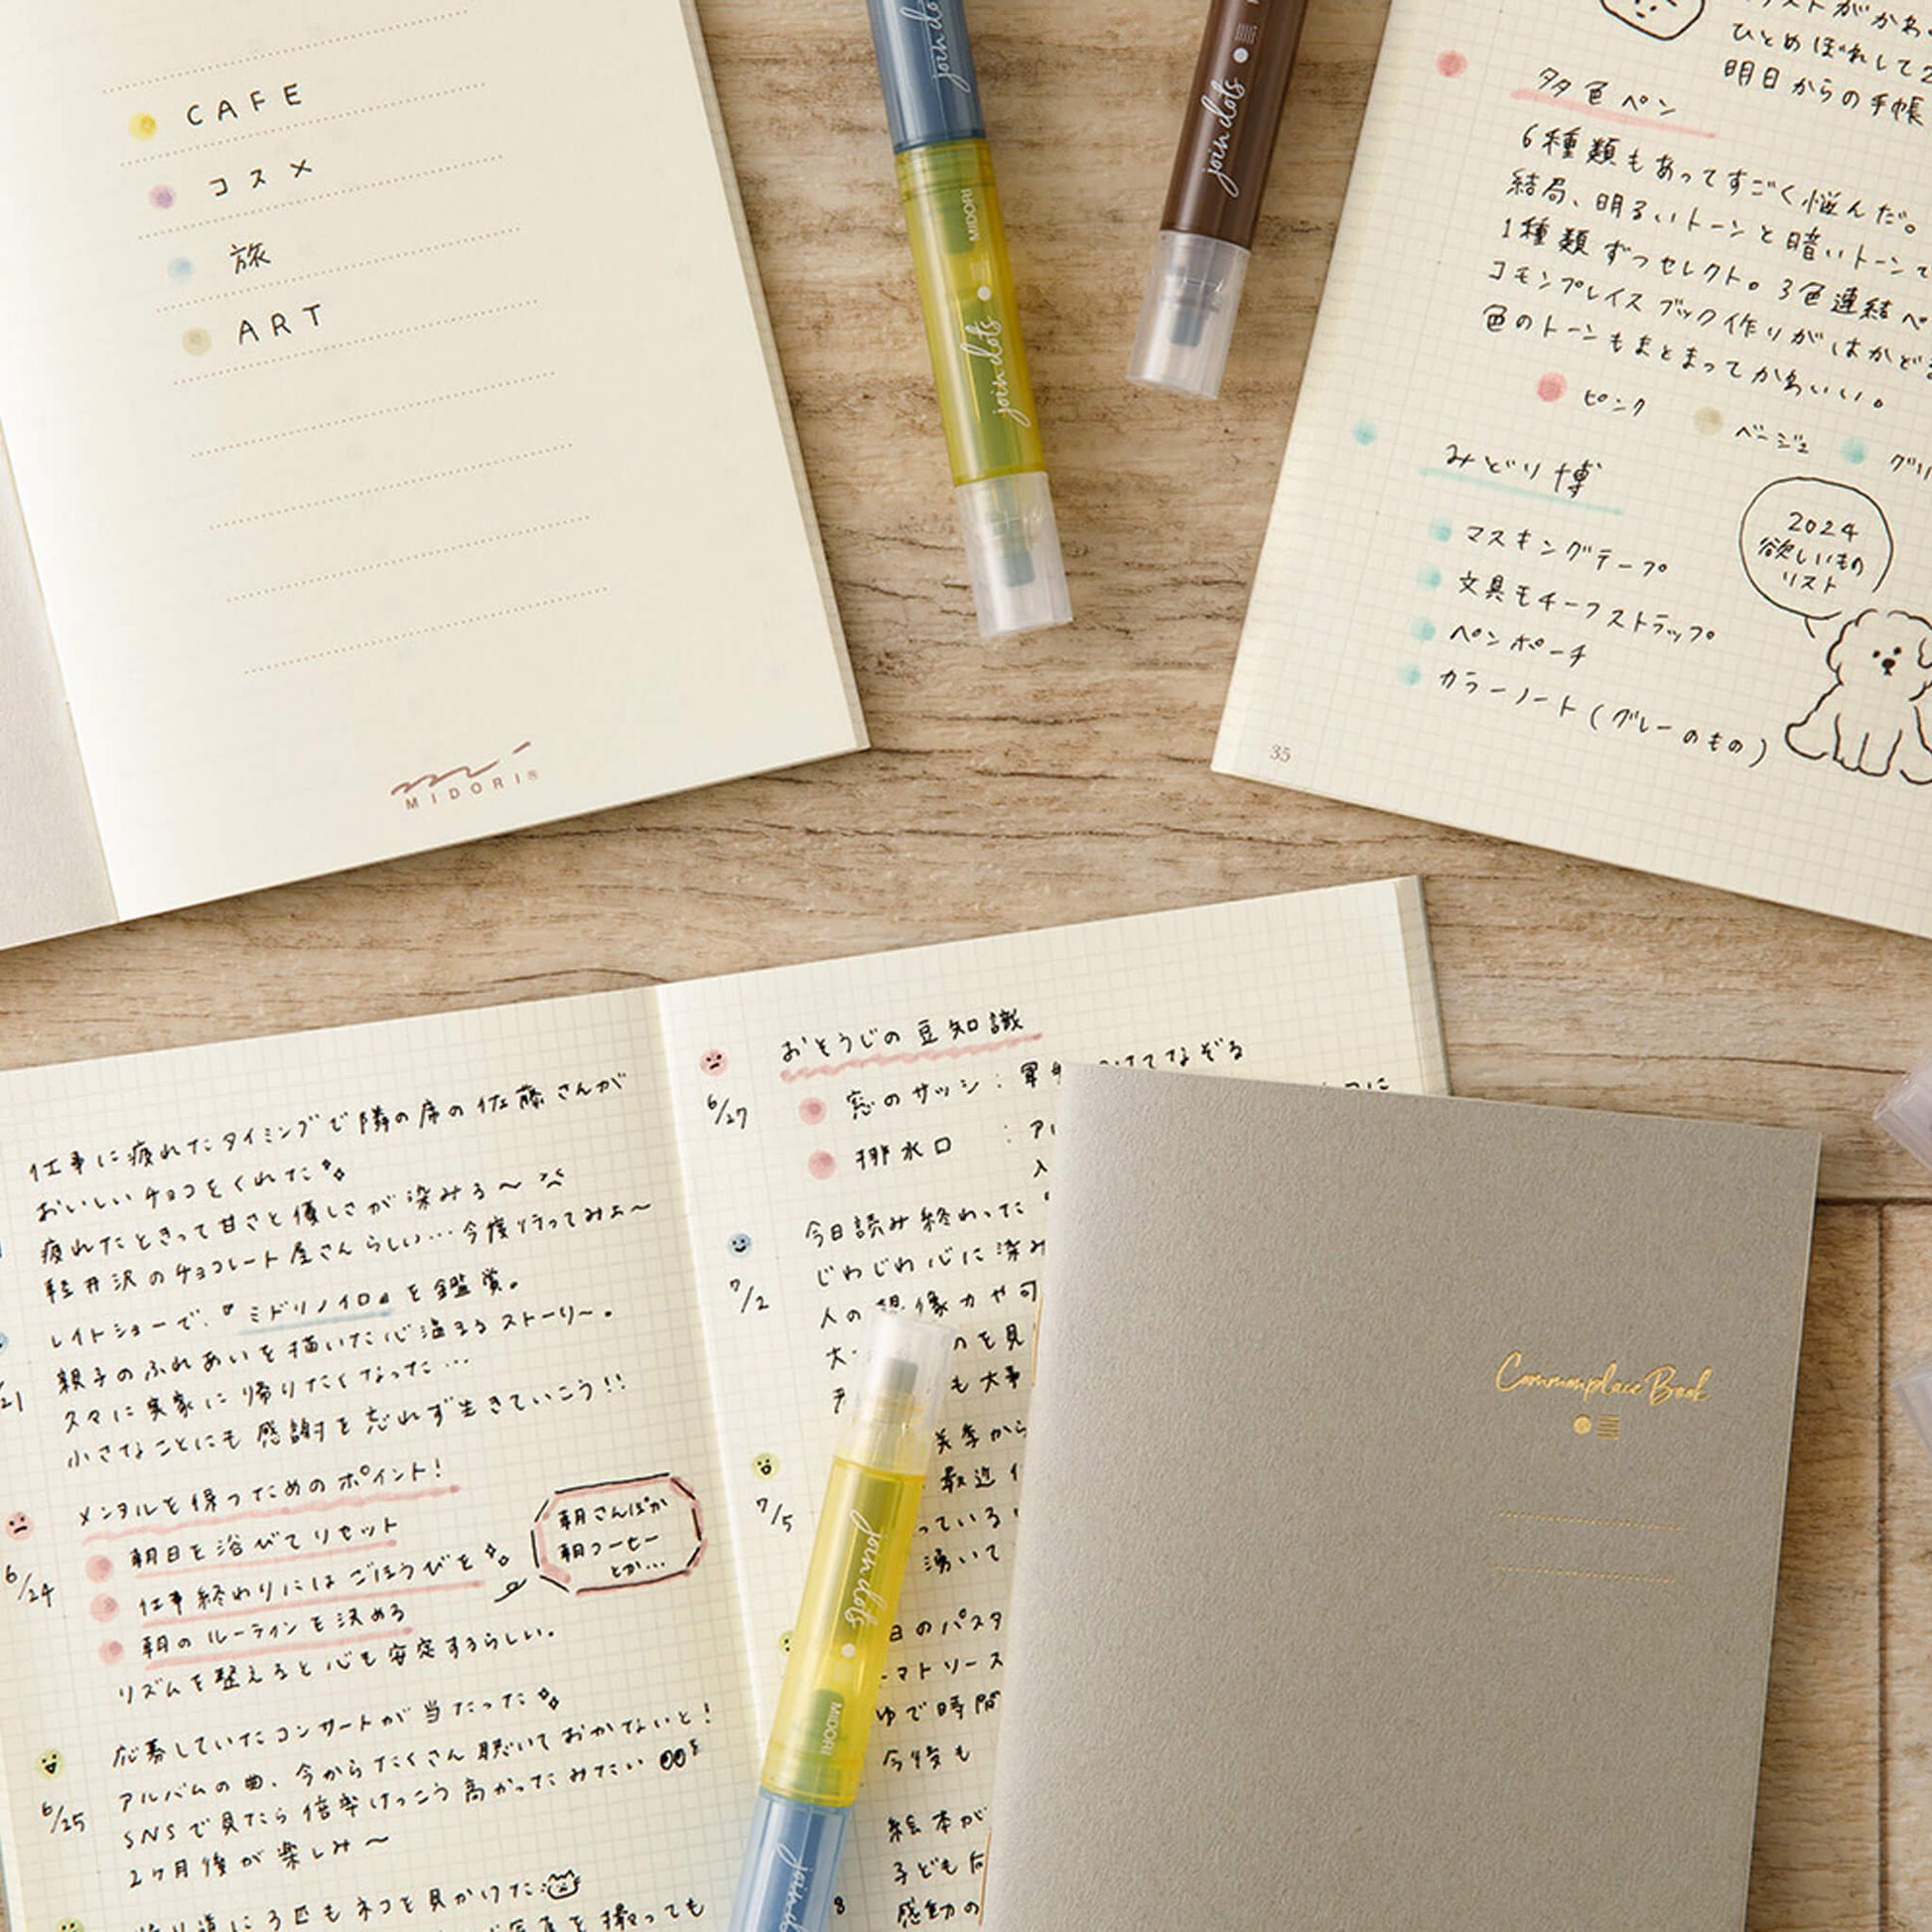 CAFE
コスメ
旅
ART
MIDORI®
join dots
join dots
MIDORI
join dots
ひとめぼれして2
明日からの手帳
多色ペン
6種類もあってすごく悩んだ。
結局、明るいトーンと暗いトーンで
1種類ずつセレクト。3色連結ペ
コモンプレイスブック作りがはかどる
色のトーンもまとまってかわいい。
ピンク
ベージュ
グリ
みどり博
マスキングテープ
文具モチーフストラップ
ペンポーチ
カラーノート(グレーのもの)
2024
欲しいもの
リスト
35
仕事に疲れたタイミングで隣の席の佐藤さんが
おいしいチョコをくれた
疲れたときって甘さと優しさが染みる〜
軽井沢のチョコレート屋さんらしい…今度行ってみよ〜
レイトショーで、『ミドリノイロ』を鑑賞。
親子のふれあいを描いた心温まるストーリー。
久々に実家に帰りたくなった…
小さなことにも感謝を忘れず生きていこう!!
メンタルを保つためのポイント!
6/24
朝日を浴びてリセット
仕事終わりにはごほうびを
朝のルーティンを決める
リズムを整えると心も安定するらしい。
朝さんぽか
朝コーヒー
とか…
6/25
応募していたコンサートが当たった
アルバムの曲、今からたくさん聴いておかないと!
SNSで見たら倍率けっこう高かったみたい
2ヶ月後が楽しみ〜
帰り道に3匹もネコを見かけた
おそうじの豆知識
6/27
窓のサッシ:
けてなぞる
排水口 :
7/2
今日読み終わった
じわじわ心に染み
人の想像力や可
のを見
も大事
7/5
美季から
最近
っている
湧いて
日のパスタ
ーマトソース
ゆで時間
今後も
8
絵本が
子ども向
感動の
join dots
MIDORI
join dots
Commonplace Book